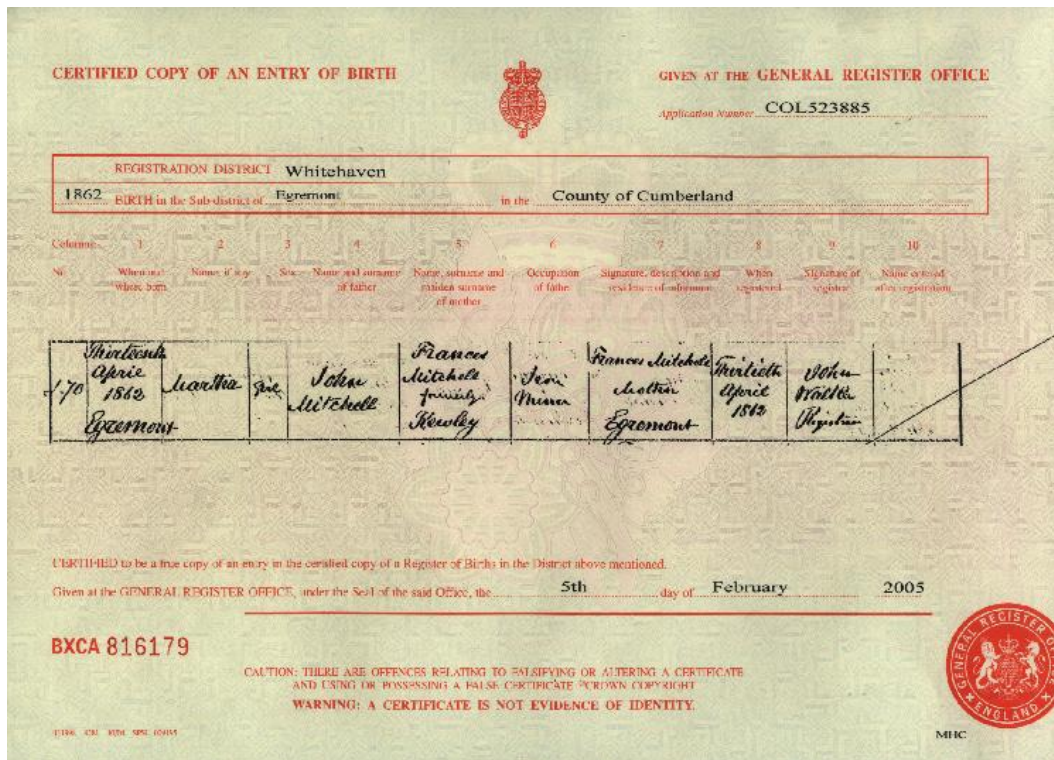 CERTIFIED COPY OF AN ENTRY OF BIRTH
GIVEN AT THE GENERAL REGISTER OFFICE
Application Number COL523885
REGISTRATION DISTRICT Whitehaven
1862 BIRTH in the Sub-district of Egremont in the County of Cumberland
Columns:- 1 2 3 4 5 6 7 8 9 10
No. When and where born Name, if any Sex Name and surname of father Name, surname and maiden surname of mother Occupation of father Signature, description and residence of informant When registered Signature of registrar Name entered after registration
Thirteenth April 1862 Egremont
Martha
Girl
John Mitchell
Frances Mitchell formerly Kewley
Iron Miner
Frances Mitchell Mother Egremont
Thirtieth April 1862
John Registrar
CERTIFIED to be a true copy of an entry in the certified copy of a Register of Births in the District above mentioned.
Given at the GENERAL REGISTER OFFICE, under the Seal of the said Office, the 5th day of February 2005
BXCA 816179
CAUTION: THERE ARE OFFENCES RELATING TO FALSIFYING OR ALTERING A CERTIFICATE
AND USING OR POSSESSING A FALSE CERTIFICATE ©CROWN COPYRIGHT
WARNING: A CERTIFICATE IS NOT EVIDENCE OF IDENTITY.
GENERAL REGISTER OFFICE
ENGLAND
MHC